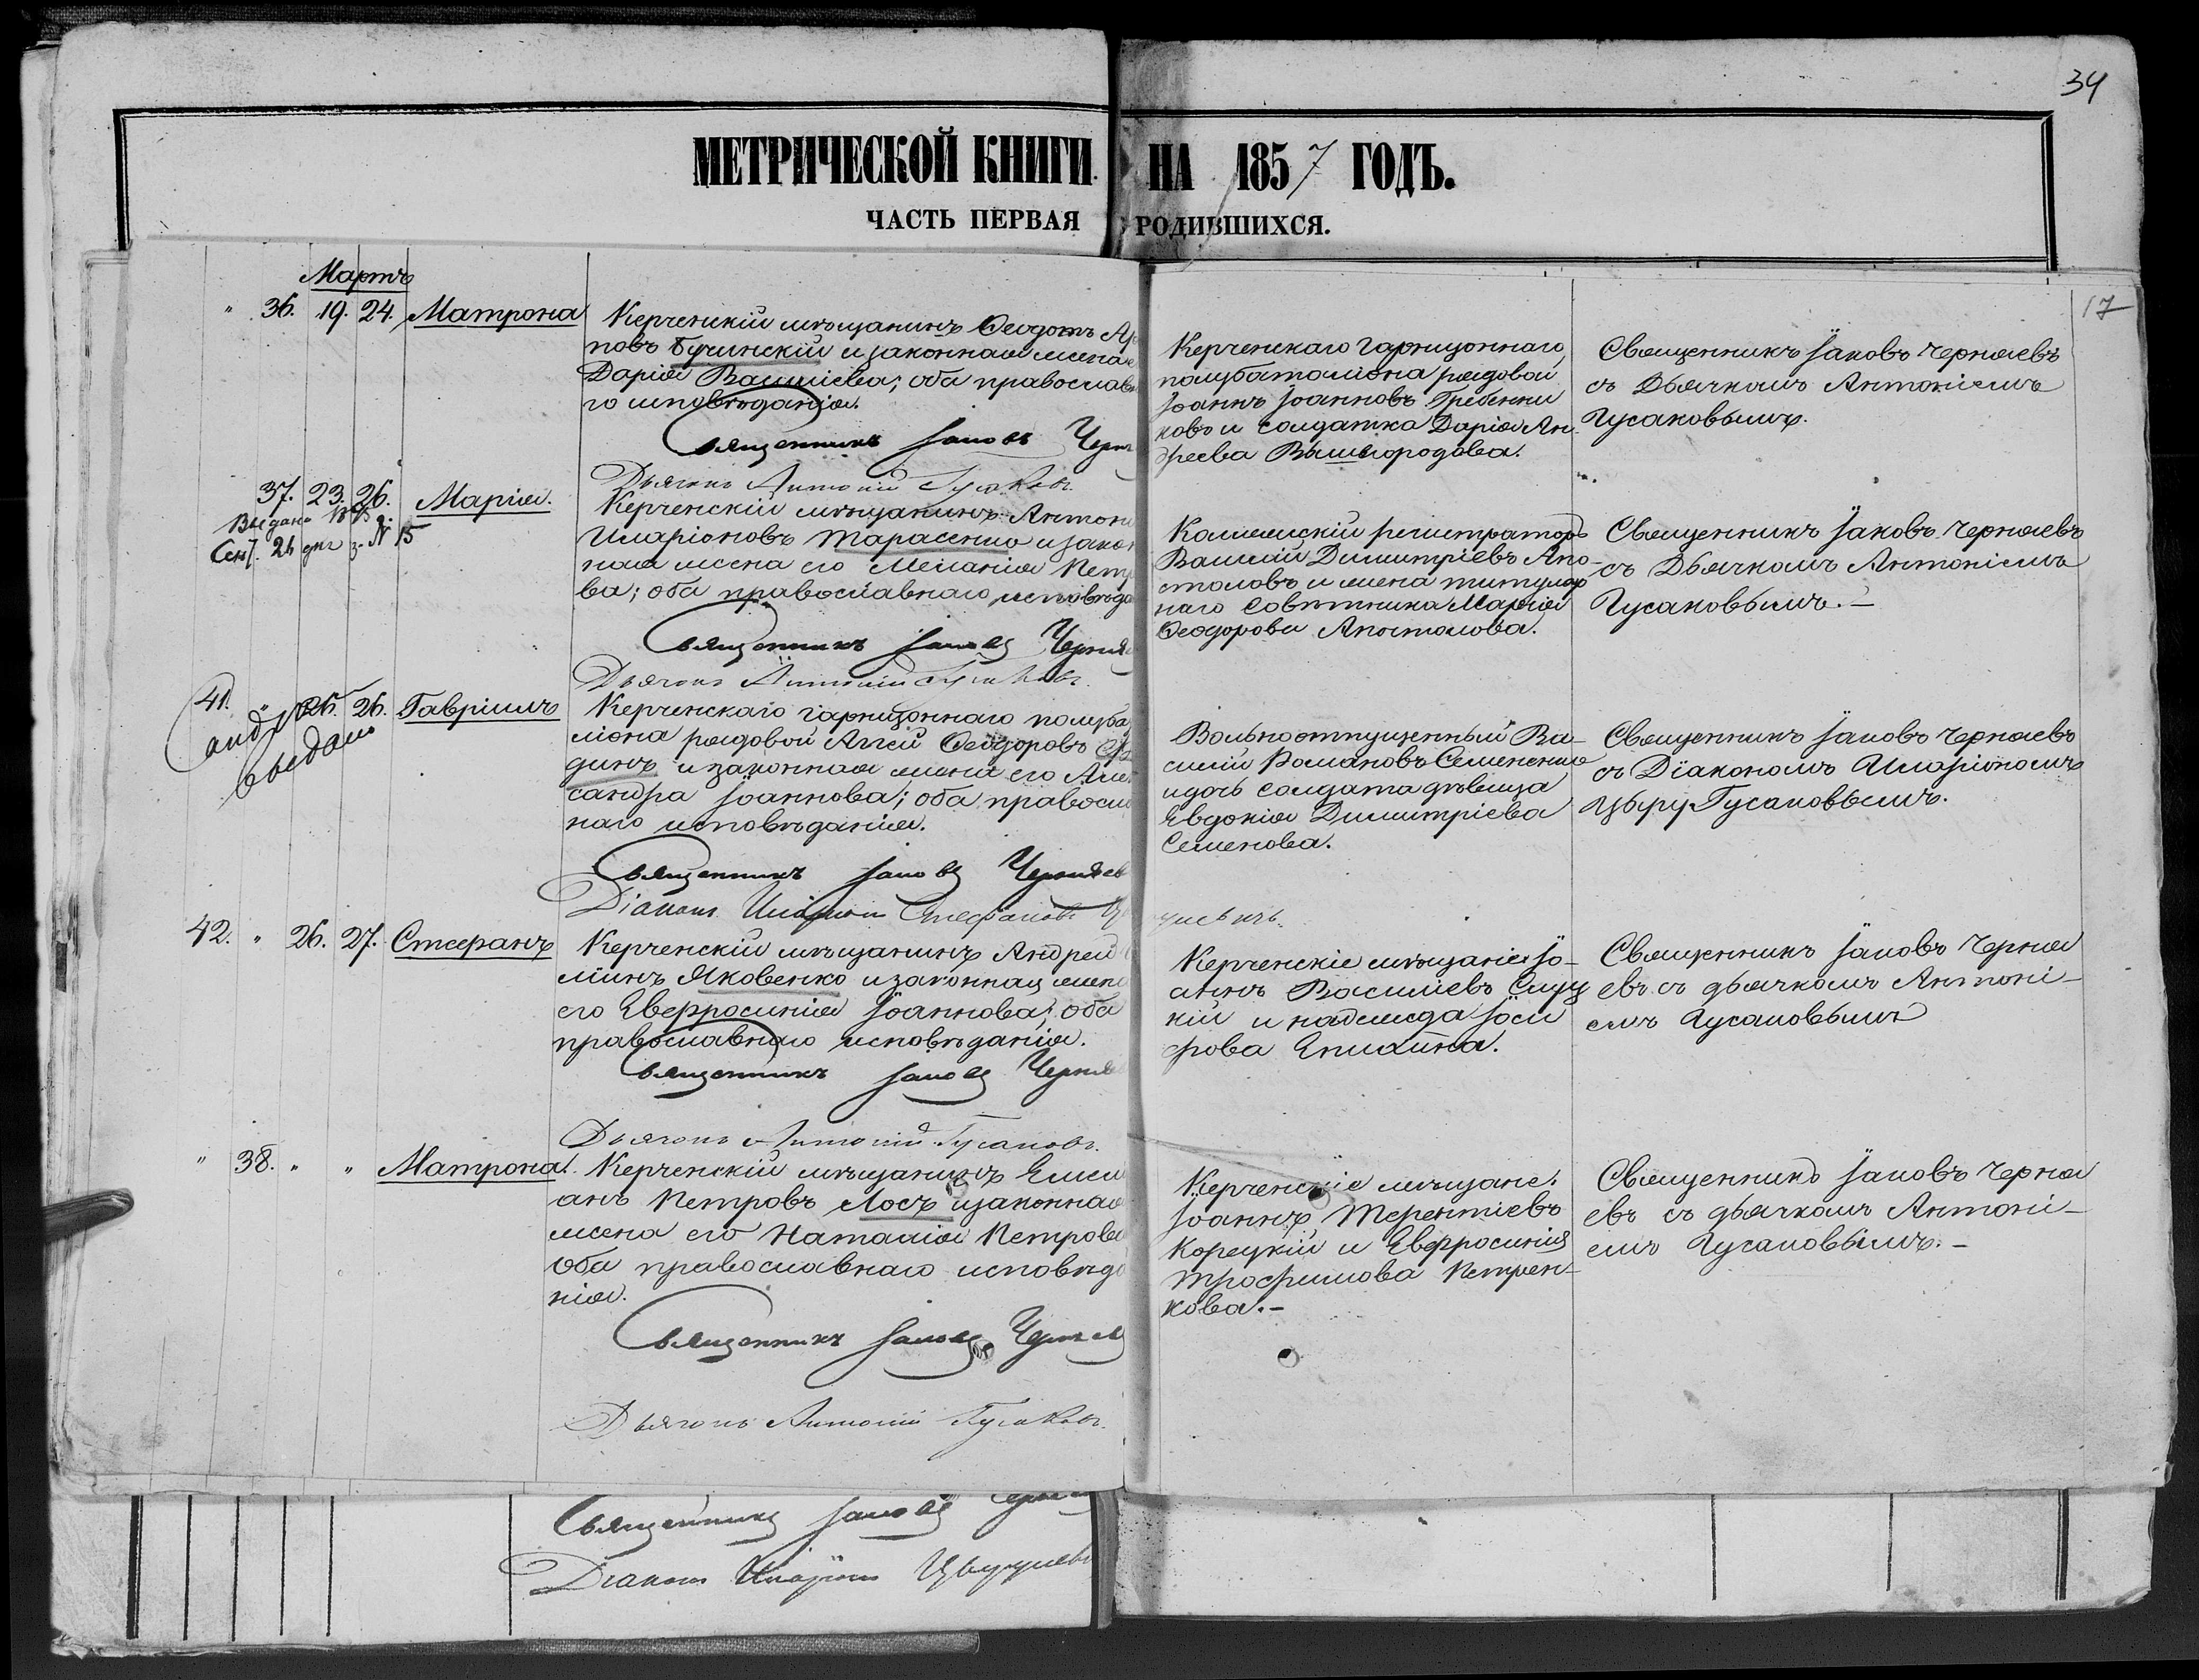 34
МЕТРИЧЕСКОЙ КНИГИ НА 1857 ГОДЪ.
ЧАСТЬ ПЕРВАЯ РОДИВШИХСЯ.
17
Мартъ
" 36. 19. 24. Матрона
Керченскій мѣщанинъ Ѳеодотъ
повъ Бучинскій и законная жена
Дарія Василіева; оба православ
го исповѣданія.
Священникъ Іаковъ Черн
Дьячокъ Антоній Гусаковъ.
Керченскаго гарнизоннаго
полубаталіона рядовой
Іоаннъ Іоанновъ Гребенни
ковъ и солдатка Дарія Ан
дреева Вышегородова.
Священникъ Іаковъ Черняевъ
съ Дьячкомъ Антоніемъ
Гусаковымъ.
37. 23. 26. Марія.
Выдано
Сент. 26 дня з. N 15
Керченскій мѣщанинъ Антон
Иларіоновъ Тарасенко и закон
ная жена его Меланія Петр
ва; оба православнаго исповѣда
Священникъ Іаковъ Черняе
Дьячокъ Антоній Гусаковъ.
Коллежскій регистраторъ
Василій Димитріевъ Апо-
столовъ и жена титуляр
наго Совѣтника Марія
Ѳеодорова Апостолова.
Священникъ Іаковъ Черняевъ
съ Дьячкомъ Антоніемъ
Гусаковымъ.-
41. " 26. 26. Гавріилъ
выдано
Керченскаго гарнизоннаго полуба
ліона рядовой Аггей Ѳеодоровъ
динъ и законная жена его Але
сандра Іоаннова; оба правосла
наго исповѣданія.
Священникъ Іаковъ Черняев
Діаконъ Иларіонъ Стефановъ
Вольноотпущенный Ва-
силій Романовъ Семененко
и дочь солдата дѣвица
Евдокія Димитріева
Семенова.
Священникъ Іаковъ Черняевъ
съ Діакономъ Иларіономъ
Гусаковымъ.
42. " 26. 27. Стефанъ
Керченскій мѣщанинъ Андрей
минъ Яковенко и законная жена
его Евфросинія Іоаннова; оба
православнаго исповѣданія.
Священникъ Іаковъ Черняе
Дьячокъ Антоній Гусаковъ.
Керченскіе мѣщаніе Іо-
аннъ Василіевъ Слуц
кій и надежда Іоси
фова Епихина.
Священникъ Іаковъ Черня
евъ съ дьячкомъ Антоні-
емъ Гусаковымъ
" 38. " " Матрона.
Керченскій мѣщанинъ Емели
анъ Петровъ Лось и законная
жена его Наталія Петрова
Оба православнаго исповѣда
нія.
Священникъ Іаковъ Черняев
Дьячокъ Антоній Гусаковъ.
Керченскіе мѣщане.
Іоаннъ Терентіевъ
Корецкій и Евфросинія
Трофимова Петрен-
кова.-
Священникъ Іаковъ Черня
евъ съ дьячкомъ Антоні-
емъ Гусаковымъ.-
Священникъ Іаковъ
Діаконъ Иларіонъ